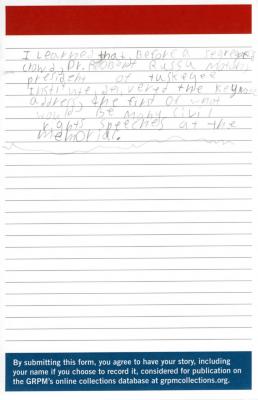 I learned that before a segregated
crowd, Dr. Robert Russa Moton,
president of Tuskegee
Institute, delivered the keynote
address, the first of what
would be many civil
rights speeches at the
memorial.
By submitting this form, you agree to have your story, including
your name if you choose to record it, considered for publication on
the GRPM's online collections database at grpmcollections.org.